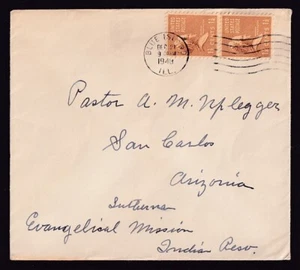 BLUE ISLAND
DEC 21
1948
ILL.
Pastor A. M. Uplegger
San Carlos
Arizonia
Lutheran
Evangelical Mission
Indian Resv.